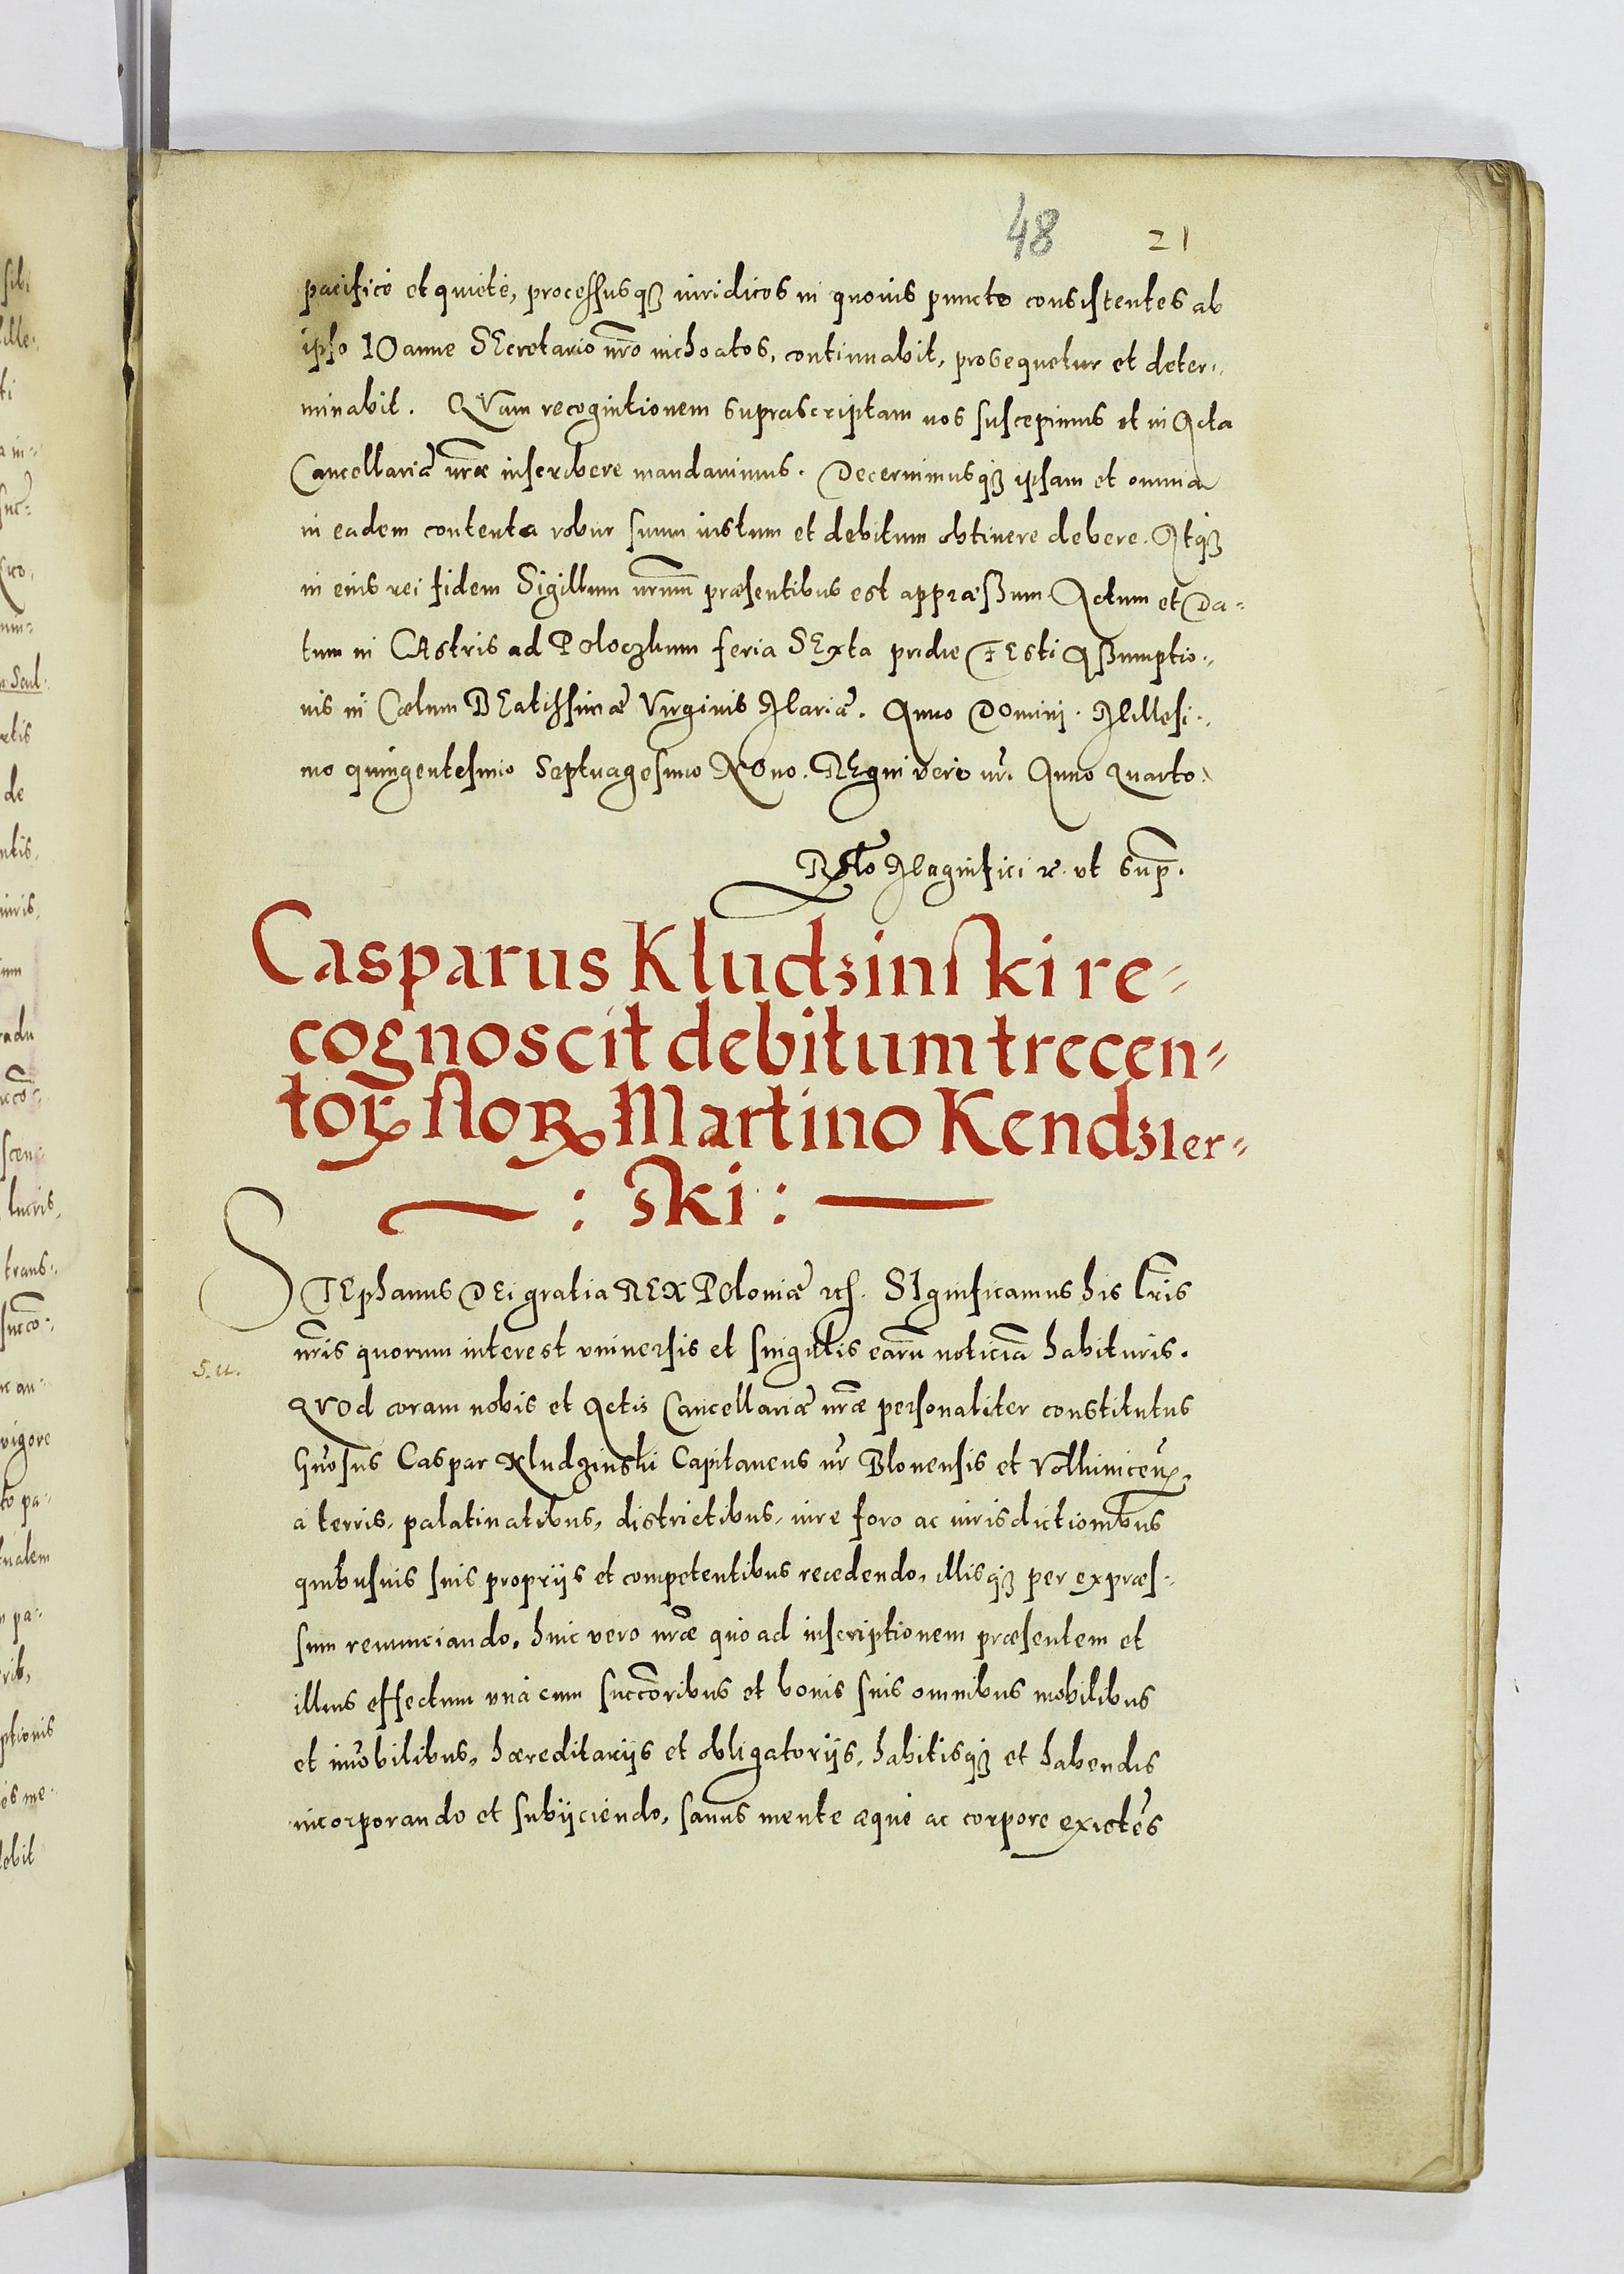 48 21
pacifice et quiete, processusq₃ iuridicos in quouis puncto consistentes ab
ipso IOanne SEcretario nr̃o inchoatos, continuabit, prosequetur et deter-
minabit. QVam recognitionem suprascriptam nos suscepimus et in Acta
Cancellariæ nr̃æ inscribere mandauimus. Decernimusq₃ ipsam et omnia
in eadem contenta robur suum iustum et debitum obtinere debere. Atq₃
in eius rei fidem Sigillum nr̃um præsentibus est appræssum Actum et Da-
tum in CAstris ad Poloczkum feria SExta pridie FEsti Assumptio-
nis in Cœlum BEatissimæ Virginis Mariæ. Anno DOmini. Millesi-
mo quingentesimo Septuagesimo NOno. REgni vero nr̃i Anno quarto.
Rl̃to Magnifici ꝛc. ut sup̃.
Casparus Kludzinski re-
cognoscit debitum trecen-
torꝝ florꝝ Martino Kendzier-
: ski :
STEphanus DEi gratia REX POloniæ ꝛcꝭ. SIgnificamus his lr̃is
nr̃is quorum interest vniuersis et singulis earũ noticiã habituris.
5. u.
QVOd coram nobis et Actis Cancellariæ nr̃æ personaliter constitutus
Gñosus Caspar Kludzinski Capitaneus nr̃ Blonensis et
a terris, palatinatibus, districtibus, iure foro ac iurisdictionibus
quibusuis suis proprijs et competentibus recedendo, illisq₃ per expræs-
sum renunciando, huic vero nr̃æ quo ad inscriptionem præsentem et
illius effectum vna cum succõribus et bonis suis omnibus mobilibus
et im̃obilibus, hæreditarijs et obligatorijs, habitisq₃ et habendis
incorporando et subijciendo, sanus mente æque ac corpore existẽs